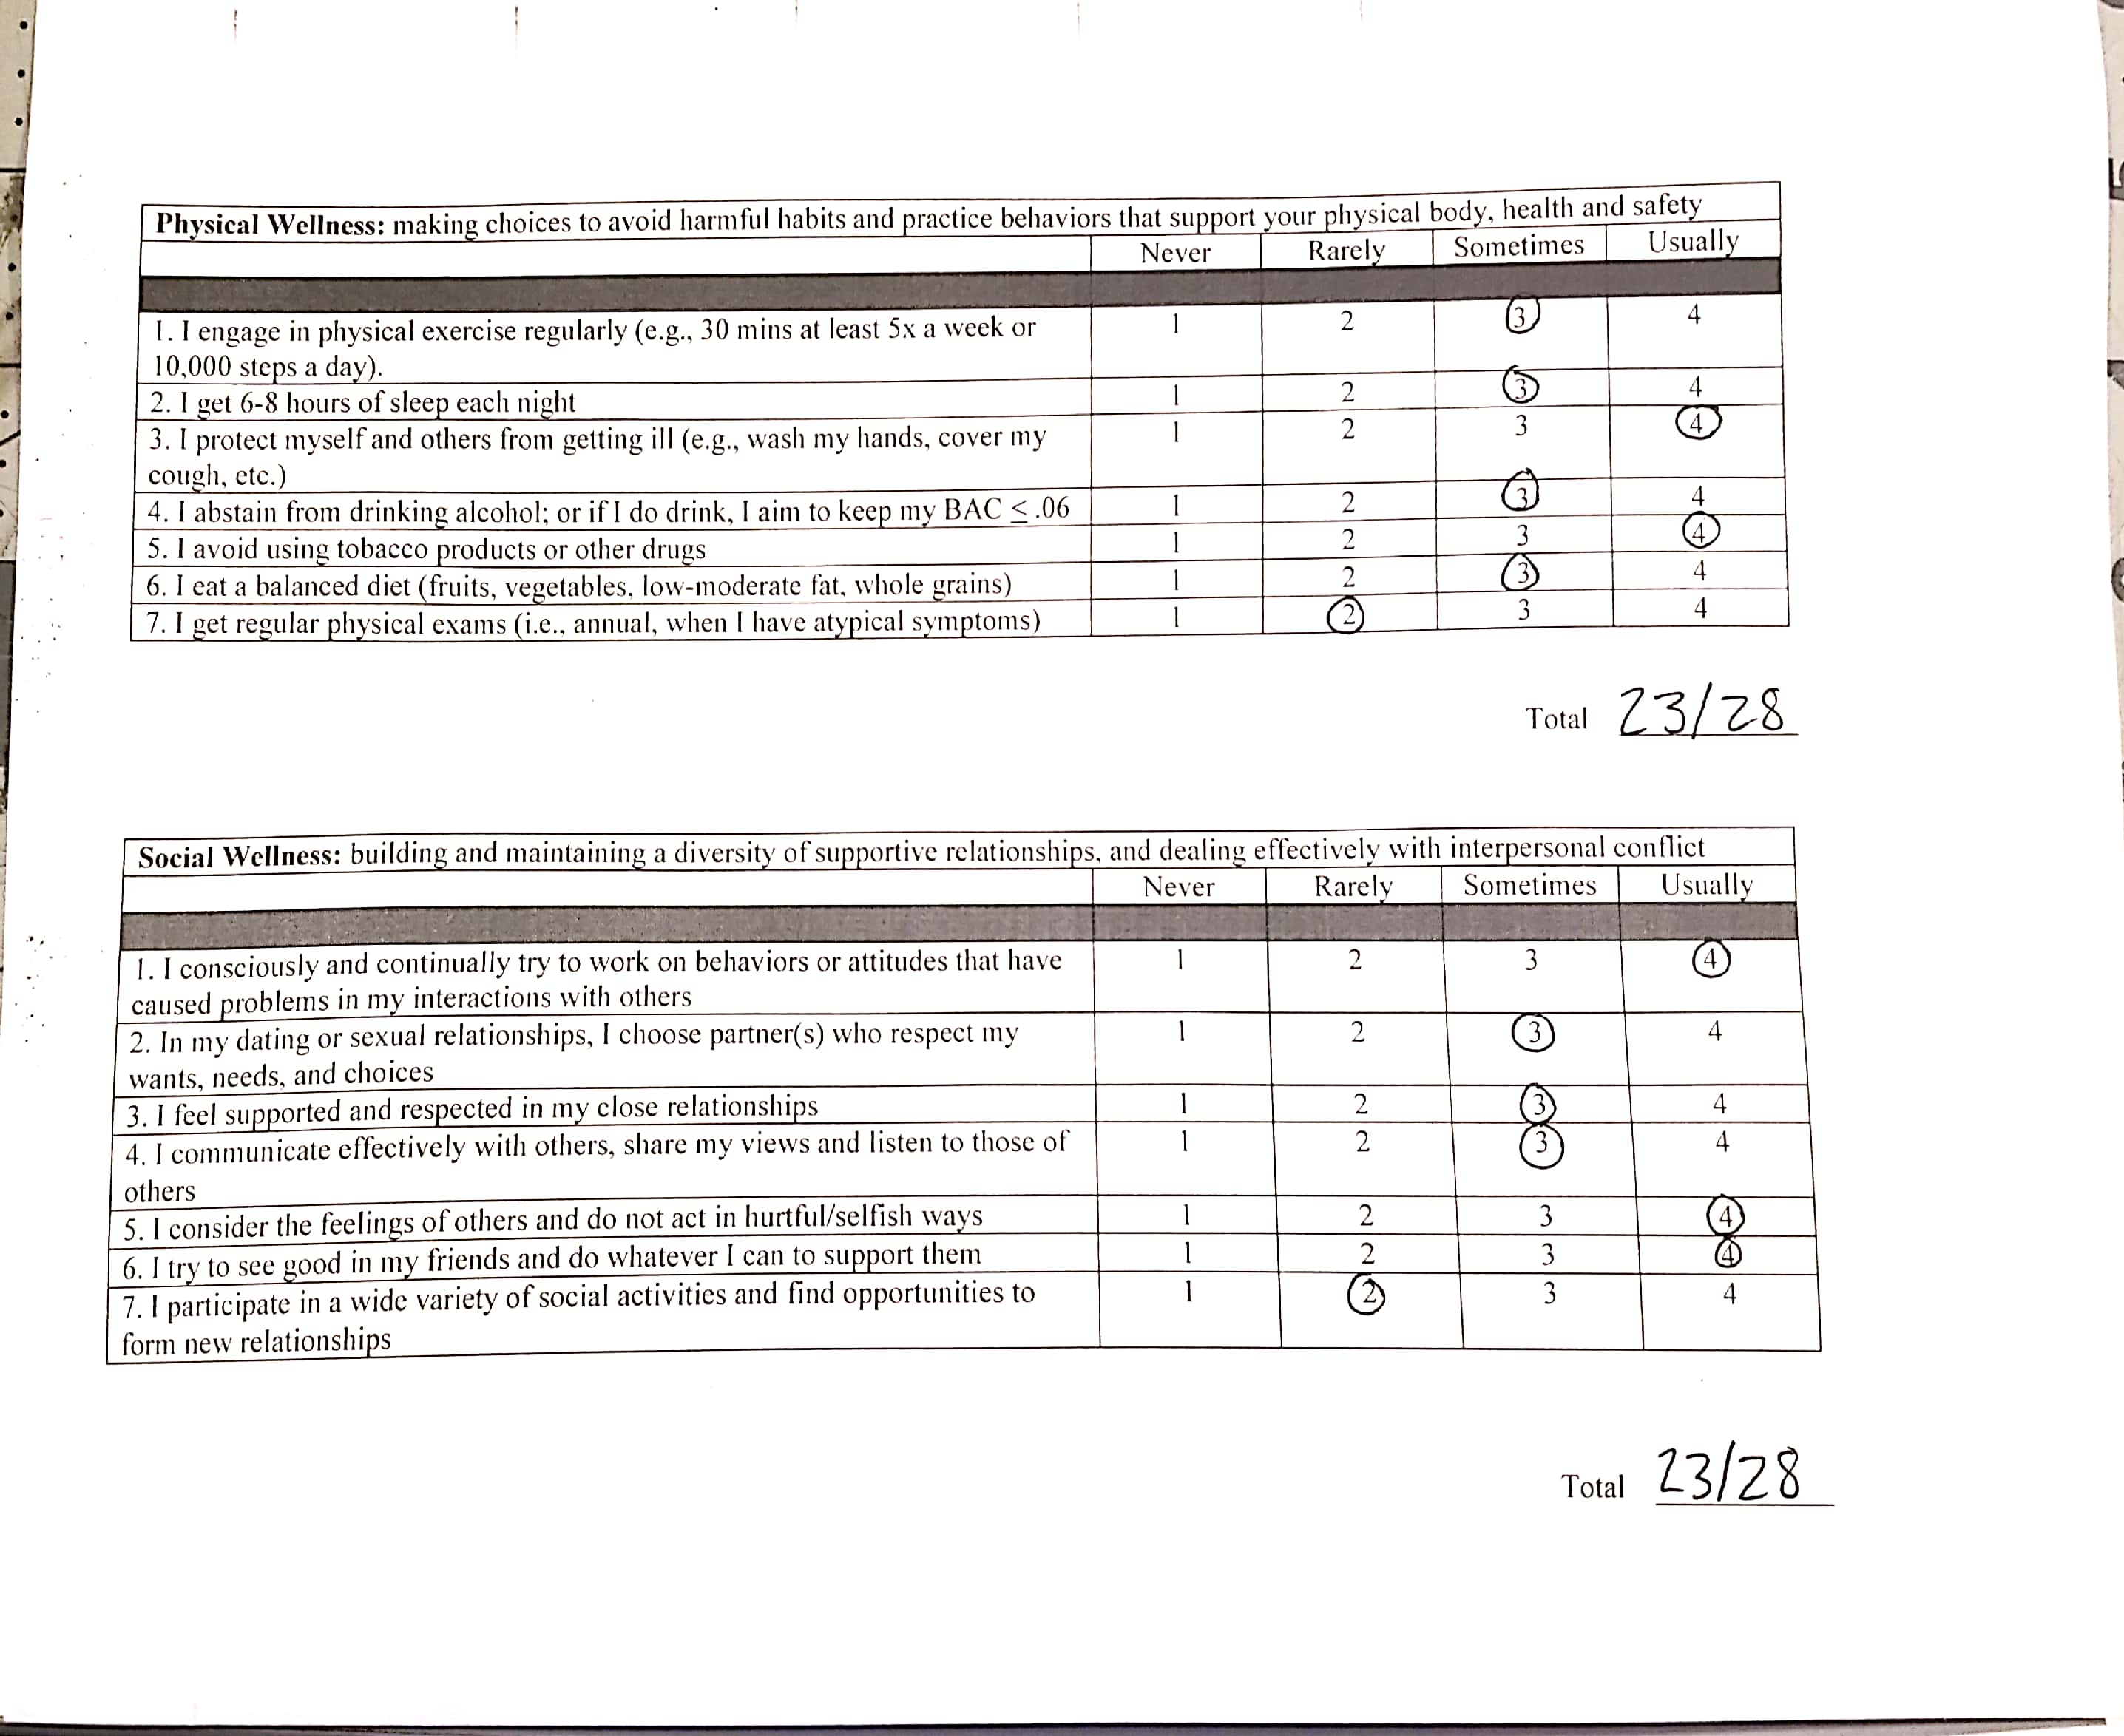 Physical Wellness: making choices to avoid harmful habits and practice behaviors that support your physical body, health and safety
Never Rarely Sometimes Usually
1. I engage in physical exercise regularly (e.g., 30 mins at least 5x a week or 1 2 3 4
10,000 steps a day).
2. I get 6-8 hours of sleep each night 1 2 3 4
3. I protect myself and others from getting ill (e.g., wash my hands, cover my 1 2 3 4
cough, etc.)
4. I abstain from drinking alcohol; or if I do drink, I aim to keep my BAC ≤ .06 1 2 3 4
5. I avoid using tobacco products or other drugs 1 2 3 4
6. I eat a balanced diet (fruits, vegetables, low-moderate fat, whole grains) 1 2 3 4
7. I get regular physical exams (i.e., annual, when I have atypical symptoms) 1 2 3 4
Total 23/28
Social Wellness: building and maintaining a diversity of supportive relationships, and dealing effectively with interpersonal conflict
Never Rarely Sometimes Usually
1. I consciously and continually try to work on behaviors or attitudes that have 1 2 3 4
caused problems in my interactions with others
2. In my dating or sexual relationships, I choose partner(s) who respect my 1 2 3 4
wants, needs, and choices
3. I feel supported and respected in my close relationships 1 2 3 4
4. I communicate effectively with others, share my views and listen to those of 1 2 3 4
others
5. I consider the feelings of others and do not act in hurtful/selfish ways 1 2 3 4
6. I try to see good in my friends and do whatever I can to support them 1 2 3 4
7. I participate in a wide variety of social activities and find opportunities to 1 2 3 4
form new relationships
Total 23/28